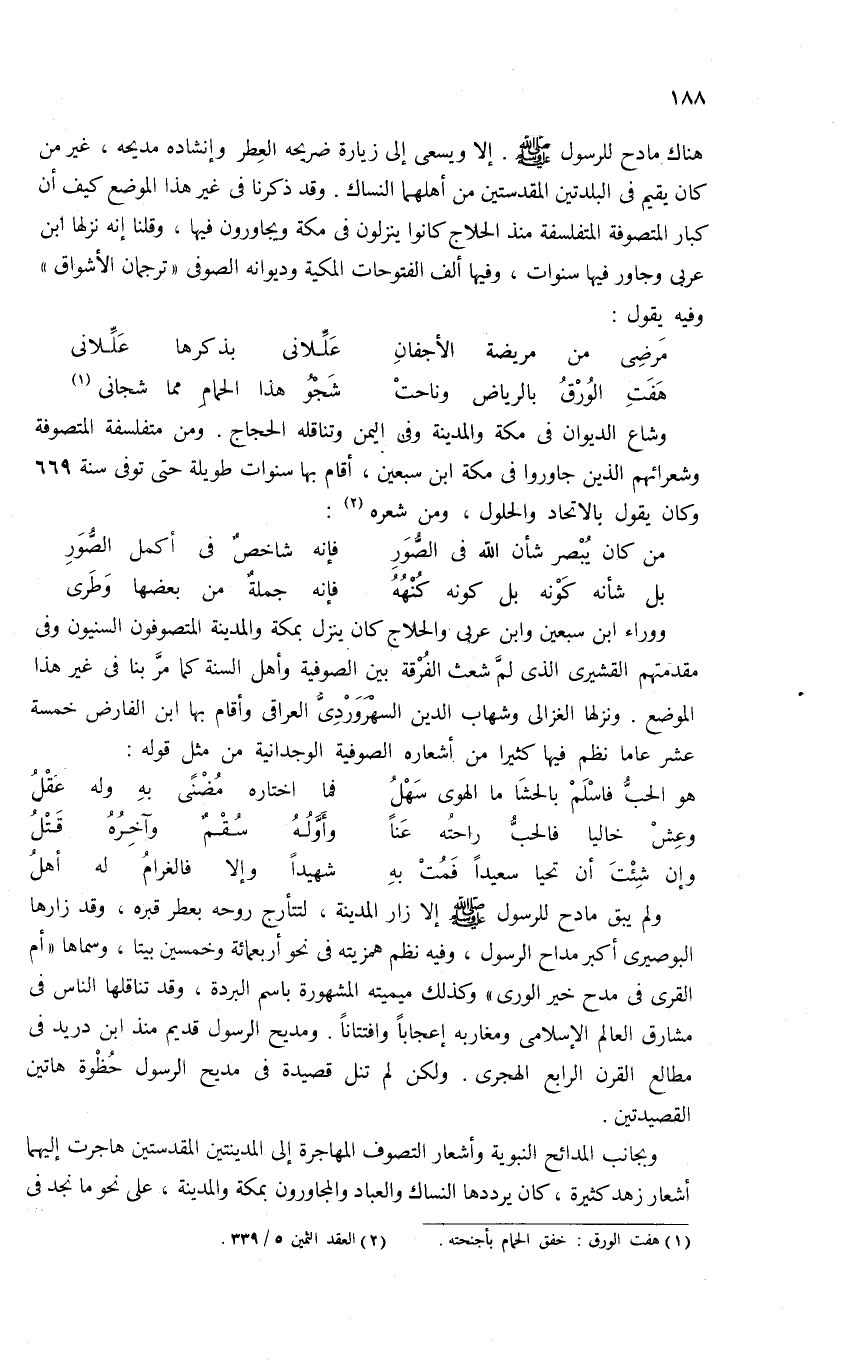 ١٨٨
هناك مادح للرسول ﷺ . إلا ويسعى إلى زيارة ضريحه العِطر وإنشاده مديحه ، غير من
كان يقيم فى البلدتين المقدستين من أهلهما النساك . وقد ذكرنا فى غير هذا الموضع كيف أن
كبار المتصوفة المتفلسفة منذ الحلاج كانوا ينزلون فى مكة ويجاورون فيها ، وقلنا إنه نزلها ابن
عربى وجاور فيها سنوات ، وفيها ألف الفتوحات المكية وديوانه الصوفى « ترجمان الأشواق »
وفيه يقول :
مَرَضِى من مريضة الأجفانِ عَلِّلانى بذكرها عَلِّلانى
هَفَتِ الوُرْقُ بالرياض وناحتْ شَجْوُ هذا الحمامِ مما شجانى (١)
وشاع الديوان فى مكة والمدينة وفى اليمن وتناقله الحجاج . ومن متفلسفة المتصوفة
وشعرائهم الذين جاوروا فى مكة ابن سبعين ، أقام بها سنوات طويلة حتى توفى سنة ٦٦٩
وكان يقول بالاتحاد والحلول ، ومن شعره (٢) :
من كان يُبْصر شأن الله فى الصُّوَرِ فإنه شاخصٌ فى أكمل الصُّوَرِ
بل شأنه كَوْنه بل كونه كُنْهُهُ فإنه جملةٌ من بعضها وَطَرى
ووراء ابن سبعين وابن عربى والحلاج كان ينزل بمكة والمدينة المتصوفون السنيون وفى
مقدمتهم القشيرى الذى لمَّ شعث الفُرْقة بين الصوفية وأهل السنة كما مرَّ بنا فى غير هذا
الموضع . ونزلها الغزالى وشهاب الدين السهْرَوَرْدِىُّ العراقى وأقام بها ابن الفارض خمسة
عشر عاما نظم فيها كثيرا من أشعاره الصوفية الوجدانية من مثل قوله :
هو الحبُّ فاسْلَمْ بالحشَا ما الهوى سَهْلُ فما اختاره مُضْنًى بهِ وله عَقْلُ
وعِشْ خاليا فالحبُّ راحتُه عَناً وأَوَّلُهُ سُقْمٌ وآخِرُهُ قَتْلُ
وإن شِئْتَ أن تحيا سعيداً فَمُتْ بهِ شهيداً وإلا فالغرامُ له أهلُ
ولم يبق مادح للرسول ﷺ إلا زار المدينة ، لتتأرج روحه بعطر قبره ، وقد زارها
البوصيرى أكبر مداح الرسول ، وفيه نظم همزيته فى نحو أربعمائة وخمسين بيتا ، وسماها « أم
القرى فى مدح خير الورى » وكذلك ميميته المشهورة باسم البردة ، وقد تناقلها الناس فى
مشارق العالم الإسلامى ومغاربه إعجاباً وافتتاناً . ومديح الرسول قديم منذ ابن دريد فى
مطالع القرن الرابع الهجرى . ولكن لم تنل قصيدة فى مديح الرسول حُظْوة هاتين
القصيدتين .
وبجانب المدائح النبوية وأشعار التصوف المهاجرة إلى المدينتين المقدستين هاجرت إليهما
أشعار زهد كثيرة ، كان يرددها النساك والعباد والمجاورون بمكة والمدينة ، على نحو ما نجد فى
(١) هفت الورق : خفق الحمام بأجنحته . (٢) العقد الثمين ٥ / ٣٣٩ .